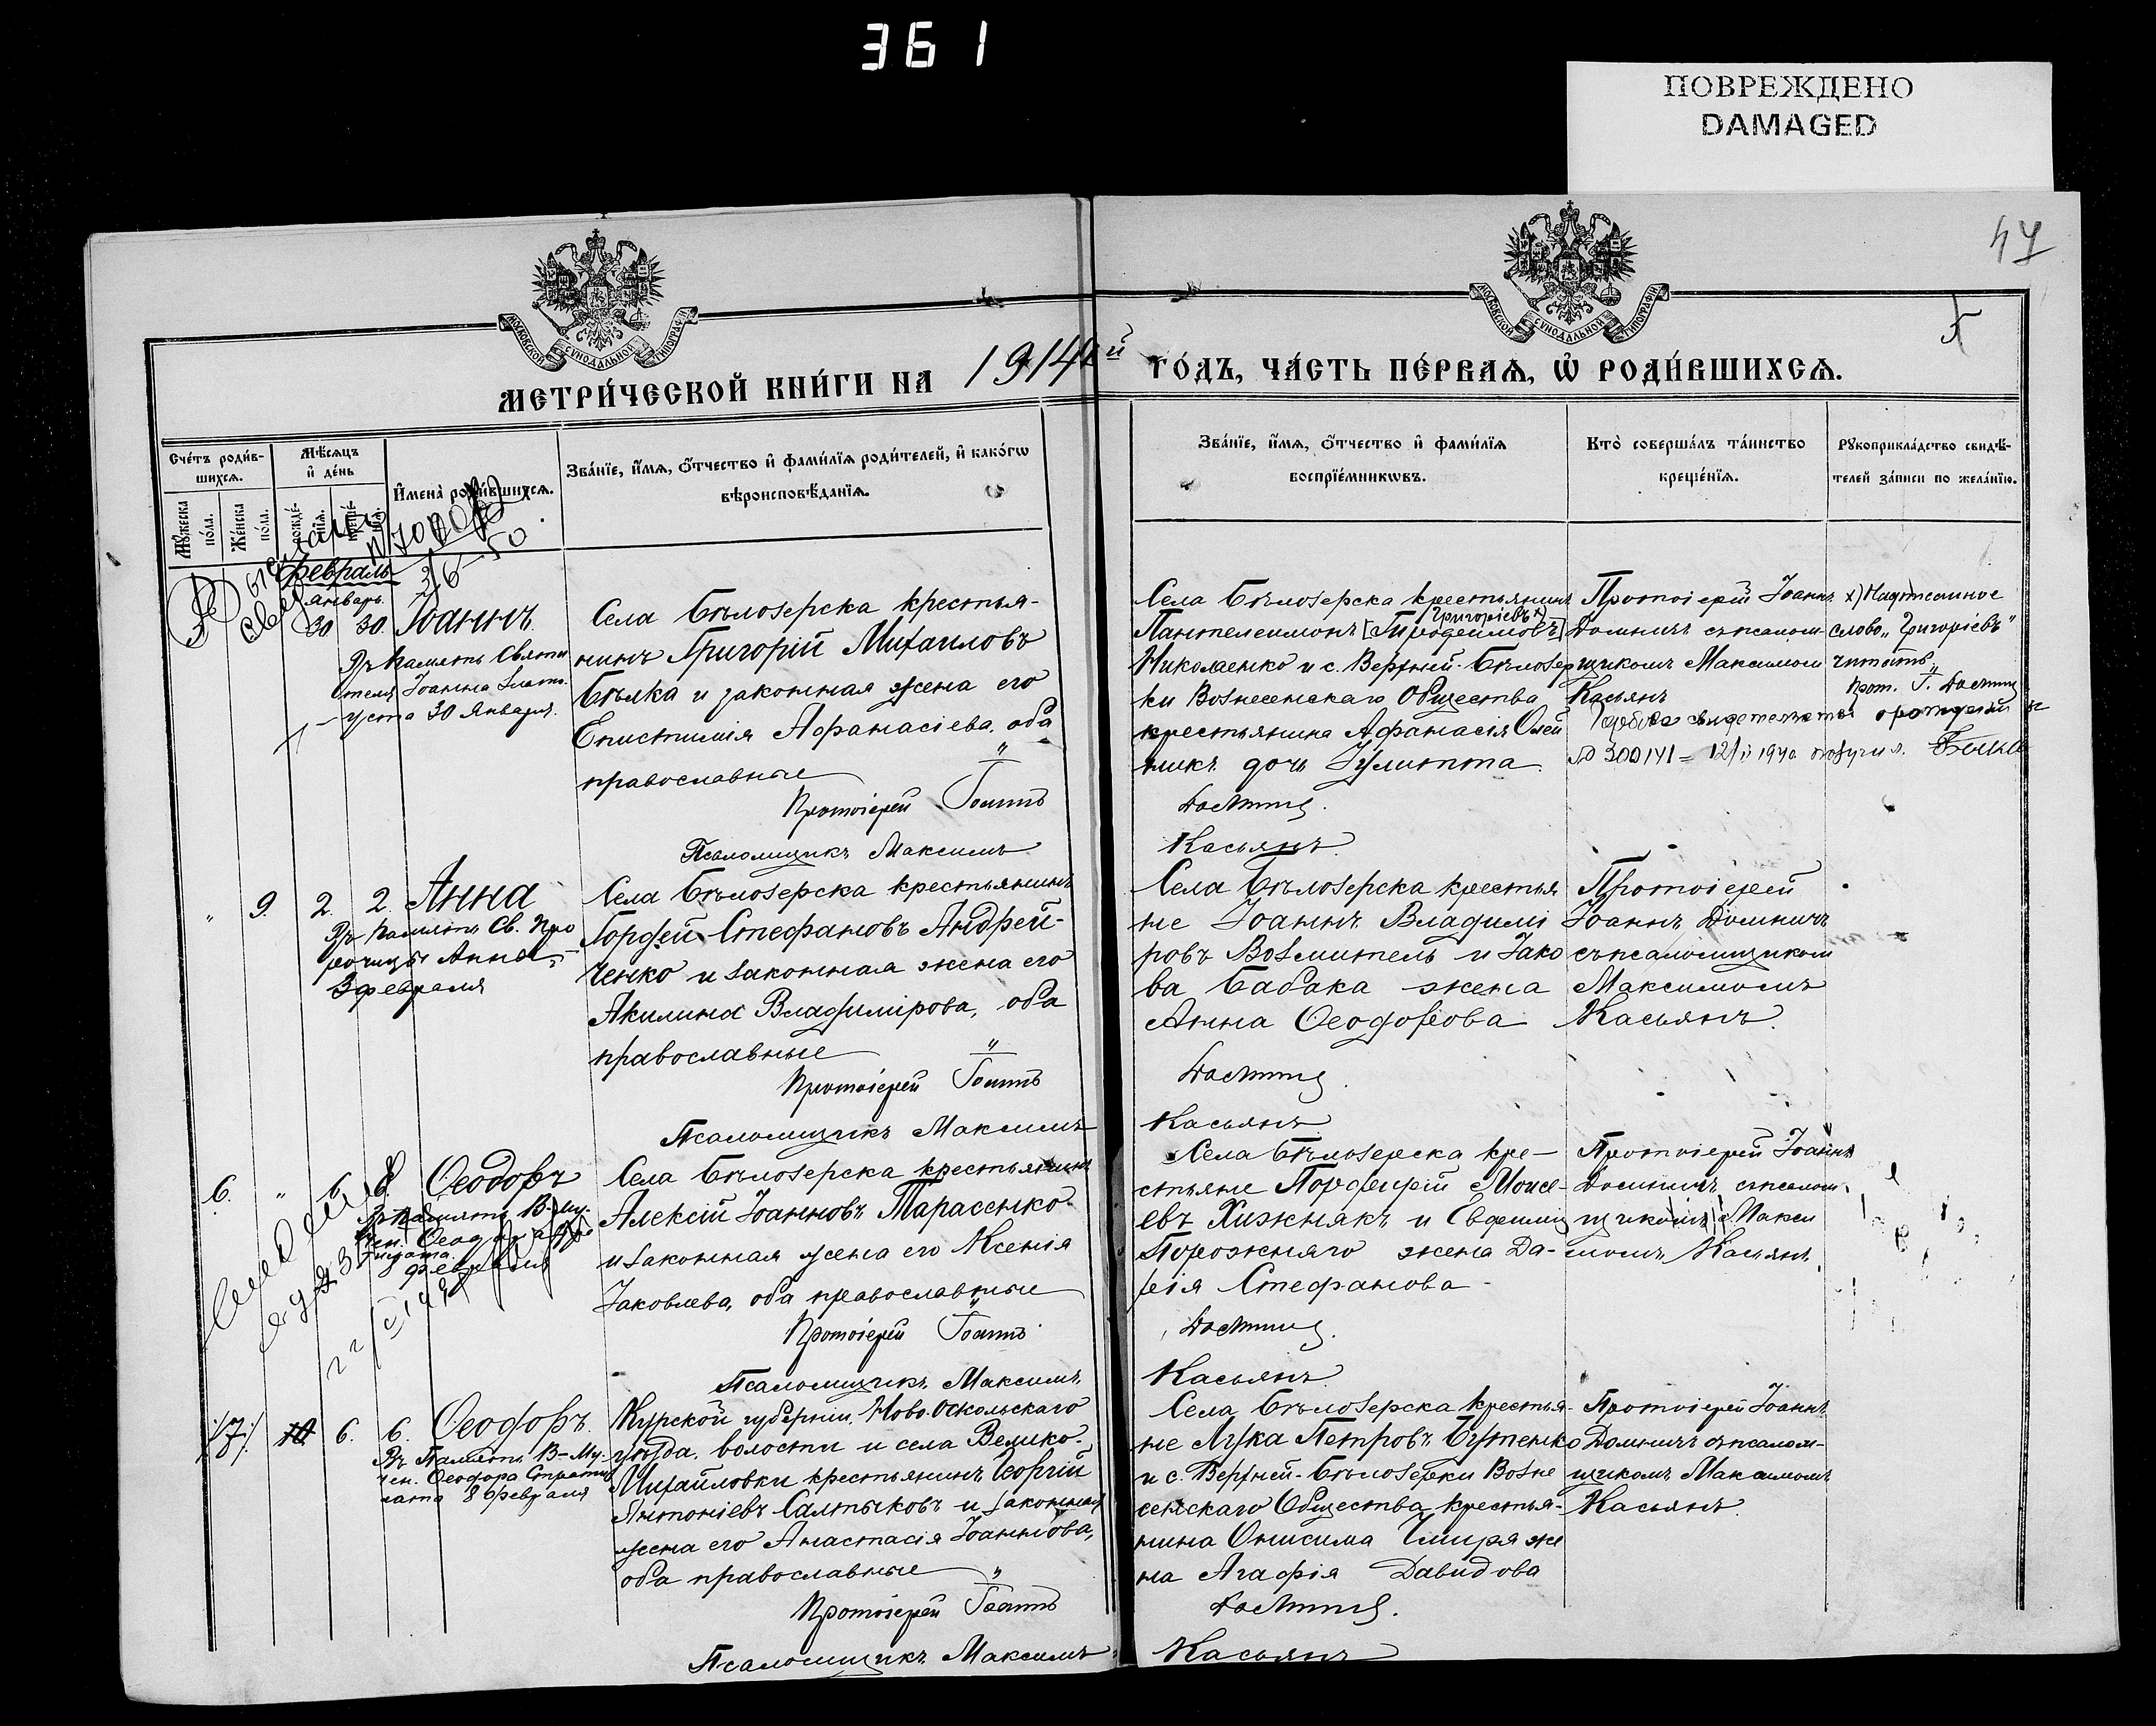 361
ПОВРЕЖДЕНО
DAMAGED
47
5
МОСКОВСКОЙ СѴНОДАЛЬНОЙ ТИПОГРАФІИ
МОСКОВСКОЙ СѴНОДАЛЬНОЙ ТИПОГРАФІИ
МЕТРИ́ЧЕСКОЙ КНИ́ГИ НА 1914й ГО́ДЪ, ЧА́СТЬ ПЕ́РВАѦ, Ѽ РОДИ́ВШИХСѦ.
Сче́тъ роди́в-
шихсѧ.
Мꙋ́жеска
по́ла.
Же́нска
по́ла.
Мѣ́сѧцъ
и҆ де́нь
рожде́-
нїѧ.
креще́-
нїѧ.
И҆мена̀ роди́вшихсѧ.
Зва́нїе, и҆́мѧ, ѻ҆́тчество и҆ фами́лїѧ роди́телей, и҆ како́гѡ
вѣроисповѣ́данїѧ.
Зва́нїе, и҆́мѧ, ѻ҆́тчество и҆ фами́лїѧ
воспрїе́мникѡвъ.
Кто̀ соверша́лъ та́инство
креще́нїѧ.
Рꙋкоприкла́дство свидѣ́-
телей за́писи по жела́нїю.
Февраль
Январь.
30 30. Іоаннъ.
Въ память Святи
теля Іоанна Злато-
уста 30 Января.
Села Бѣлозерска крестья-
нинъ Григорій Михаиловъ
Бѣлка и законная жена его
Епистимія Афанасіева, оба
православные
Протоіерей Іоаннъ
Псаломщикъ Максимъ
Села Бѣлозерска крестьянинъ
Григоріевъ х)
Пантелеимонъ
Николаенко и с. Верхней-Бѣлозер
ки Вознесенскаго Общества
крестьянина Афанасія Олей
никъ дочь Іулитта.
Домнич.
Касьянъ.
Протоіерей Іоаннъ
Домничъ съ псалом-
щикомъ Максимом
Касьянъ
х) Надписанное
слово „Григоріевъ"
читать
Прот. І. Домнич
№ 300141 1940 получил.
" 9. 2. 2. Анна
Въ память Св. Про
рочицы Анны
3 февраля
Села Бѣлозерска крестьянинъ
Гордей Стефановъ Андрей-
ченко и законная жена его
Акилина Владимірова, оба
православные
Протоіерей Іоаннъ
Псаломщикъ Максимъ
Села Бѣлозерска крестья
не Іоаннъ Владимі
ровъ Возмитель и Іако
ва Бабака жена
Анна Ѳеодорова
Домнич.
Касьянъ
Протоіерей
Іоаннъ Домничъ
съ псаломщиком
Максимомъ
Касьянъ.
6. " 6. 8. Ѳеодоръ
Въ память В-му-
чен. Ѳеодора
8 февраля
Села Бѣлозерска крестьянинъ
Алексій Іоанновъ Тарасенко
и законная жена его Ксенія
Іаковлева, оба православные
Протоіерей Іоаннъ
Псаломщикъ Максимъ
Села Бѣлозерска кре-
стьяне Порфирій Моисе-
евъ Хижнякъ и Евфимія
Порожняго жена Да-
рія Стефанова
Домнич.
Касьянъ.
Протоіерей Іоаннъ
Домничъ съ псалом-
щикомъ Макси
момъ Касьянъ.
7. 10 6. 6. Ѳеодоръ.
Въ Память В-Му-
чен. Ѳеодора Страти
лата 8 февраля
Курской губерніи, Ново-Оскольскаго
уѣзда, волости и села Велико-
Михайловки крестьянинъ Георгій
Антоніевъ Салтыковъ и законная
жена его Анастасія Іоаннова,
оба православные
Протоіерей Іоаннъ
Псаломщикъ Максимъ
Села Бѣлозерска крестья-
не Лука Петровъ Бутенко
и с. Верхней-Бѣлозерки Возне
сенскаго Общества крестья-
нина Онисима Чмиря же
на Агафія Давидова
Домнич.
Касьянъ
Протоіерей Іоаннъ
Домничъ съ псалом-
щикомъ Максимомъ
Касьянъ.